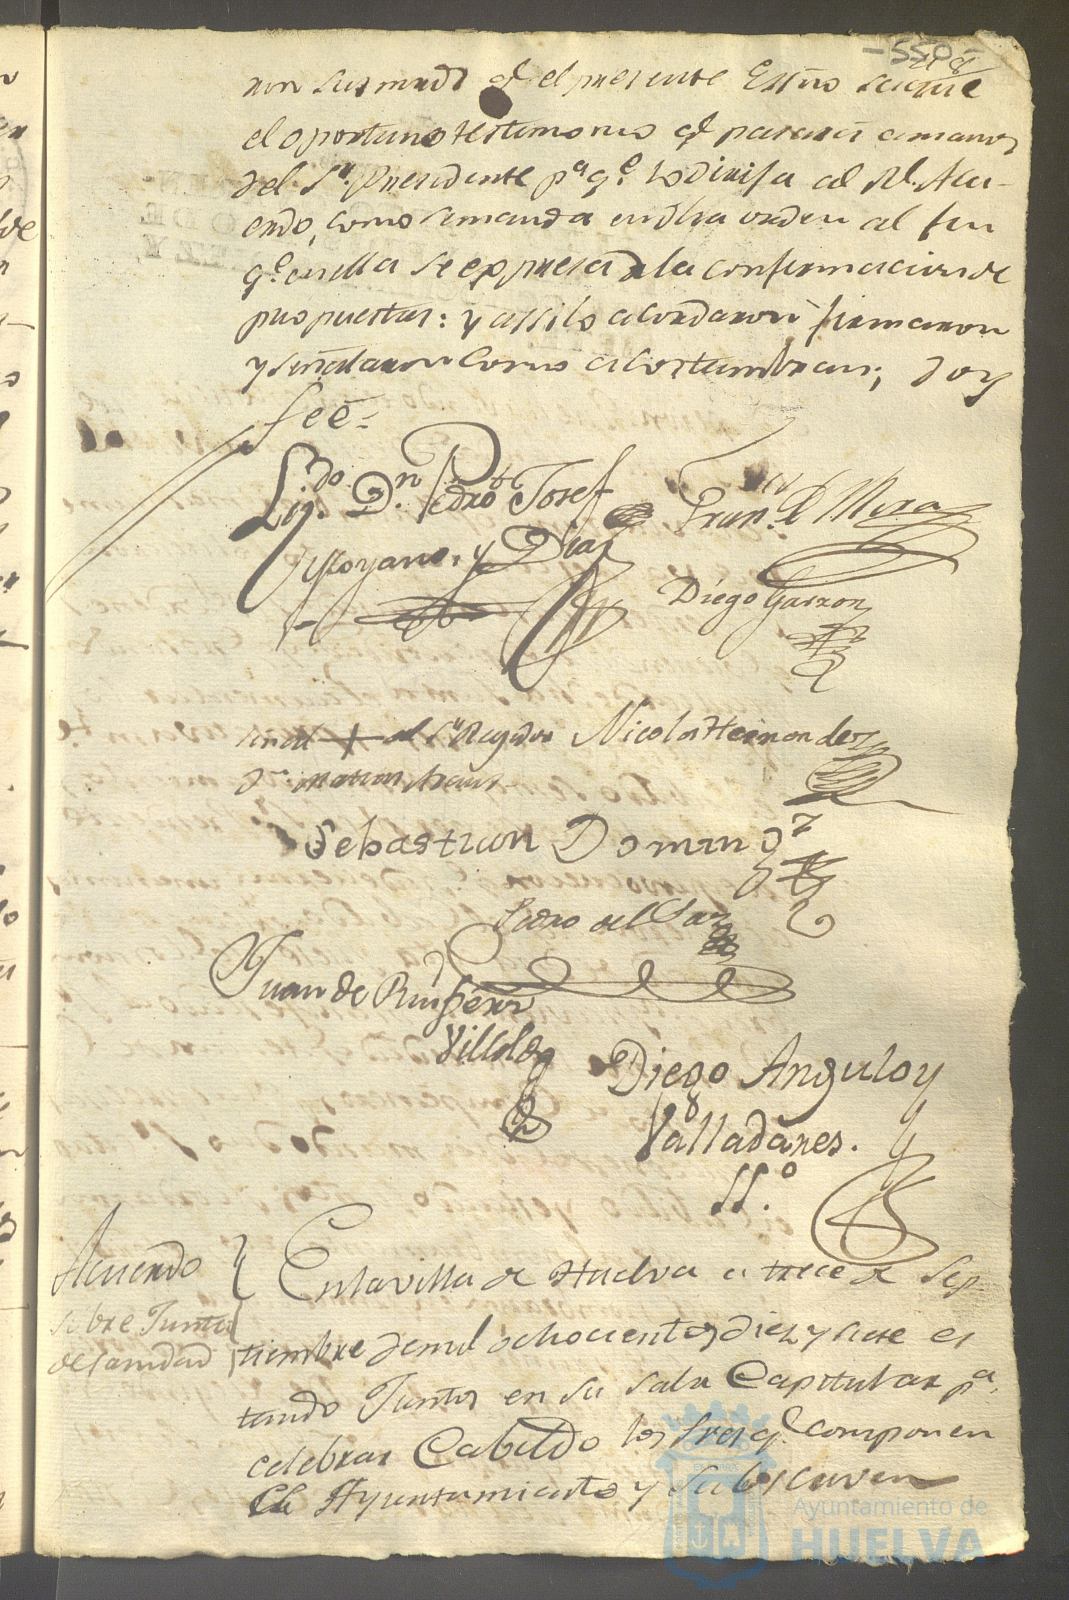 -550-
ron sus mrds q.e el presente Essno saque
el oportuno testimonio q.e pasará a manos
del S.r Presidente p.a q.e lo dirija al Rl. Acu-
erdo, como se manda en dha orden al fin
q.e en ella se expresa de la confirmacion de
propuestas: y assi lo acordaron firmaron
y señalaron como acostumbran; doy
feé=
Liz.do D.n Pedro Josef
Moyano, y Díaz
Fran.co de Mora
Diego Garzon
señal + del S.r Regidor
Nicolas Hernandez
Sebastian Doming.z
Pedro del Saz
Juan de
Villalva
Diego Angulo y
Valladares.
SS.o
Acuerdo
sobre Junta
de sanidad
En la villa de Huelva a trece de Sep
tiembre de mil ochocientos diez y siete es
tando Juntos en su sala Capitular p.a
celebrar Cabildo los Sres q.e componen
el Ayuntamiento y subscriven
Ayuntamiento de
HUELVA